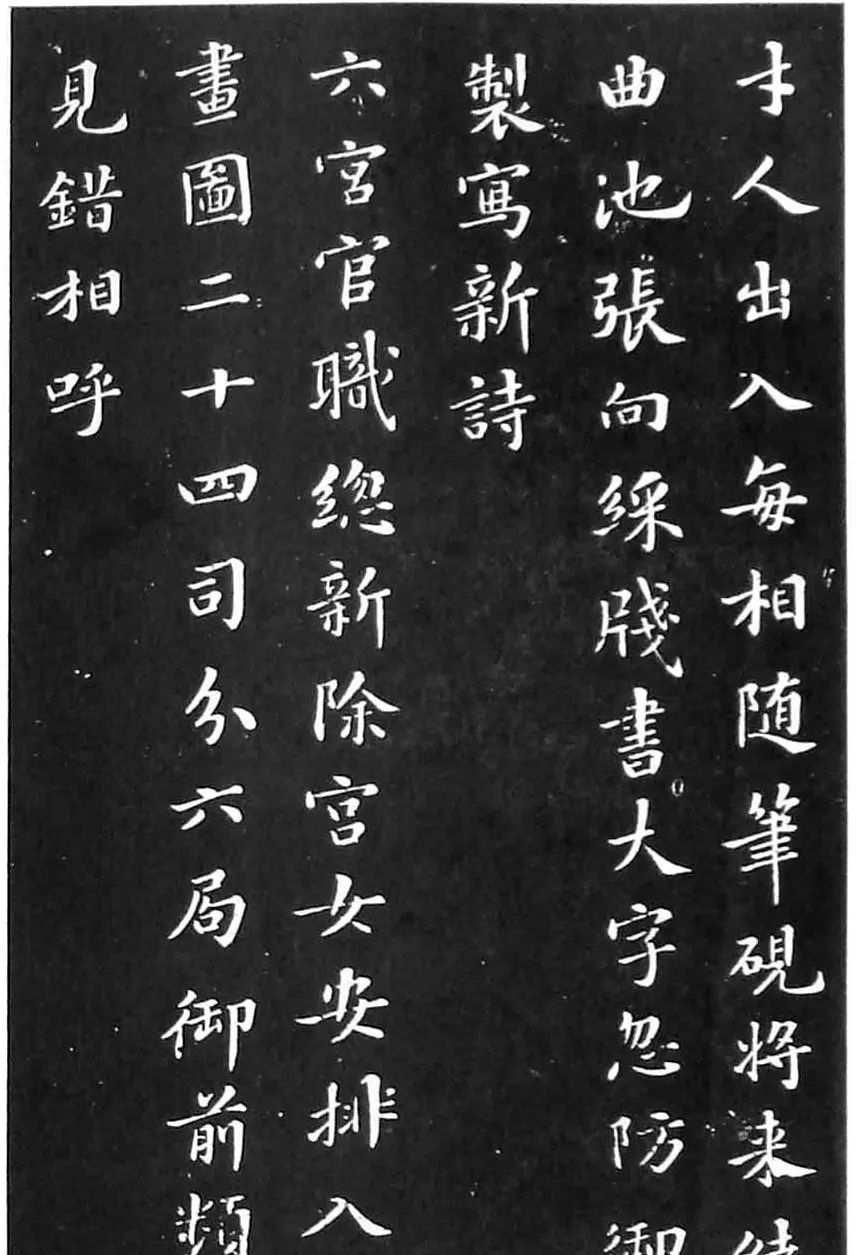 才人出入每相随筆硯将来
曲池張向綵牋書大字忽防御
製寫新詩
六宮官職緫新除宮女安排入
畫圖二十四司分六局御前頻
見錯相呼